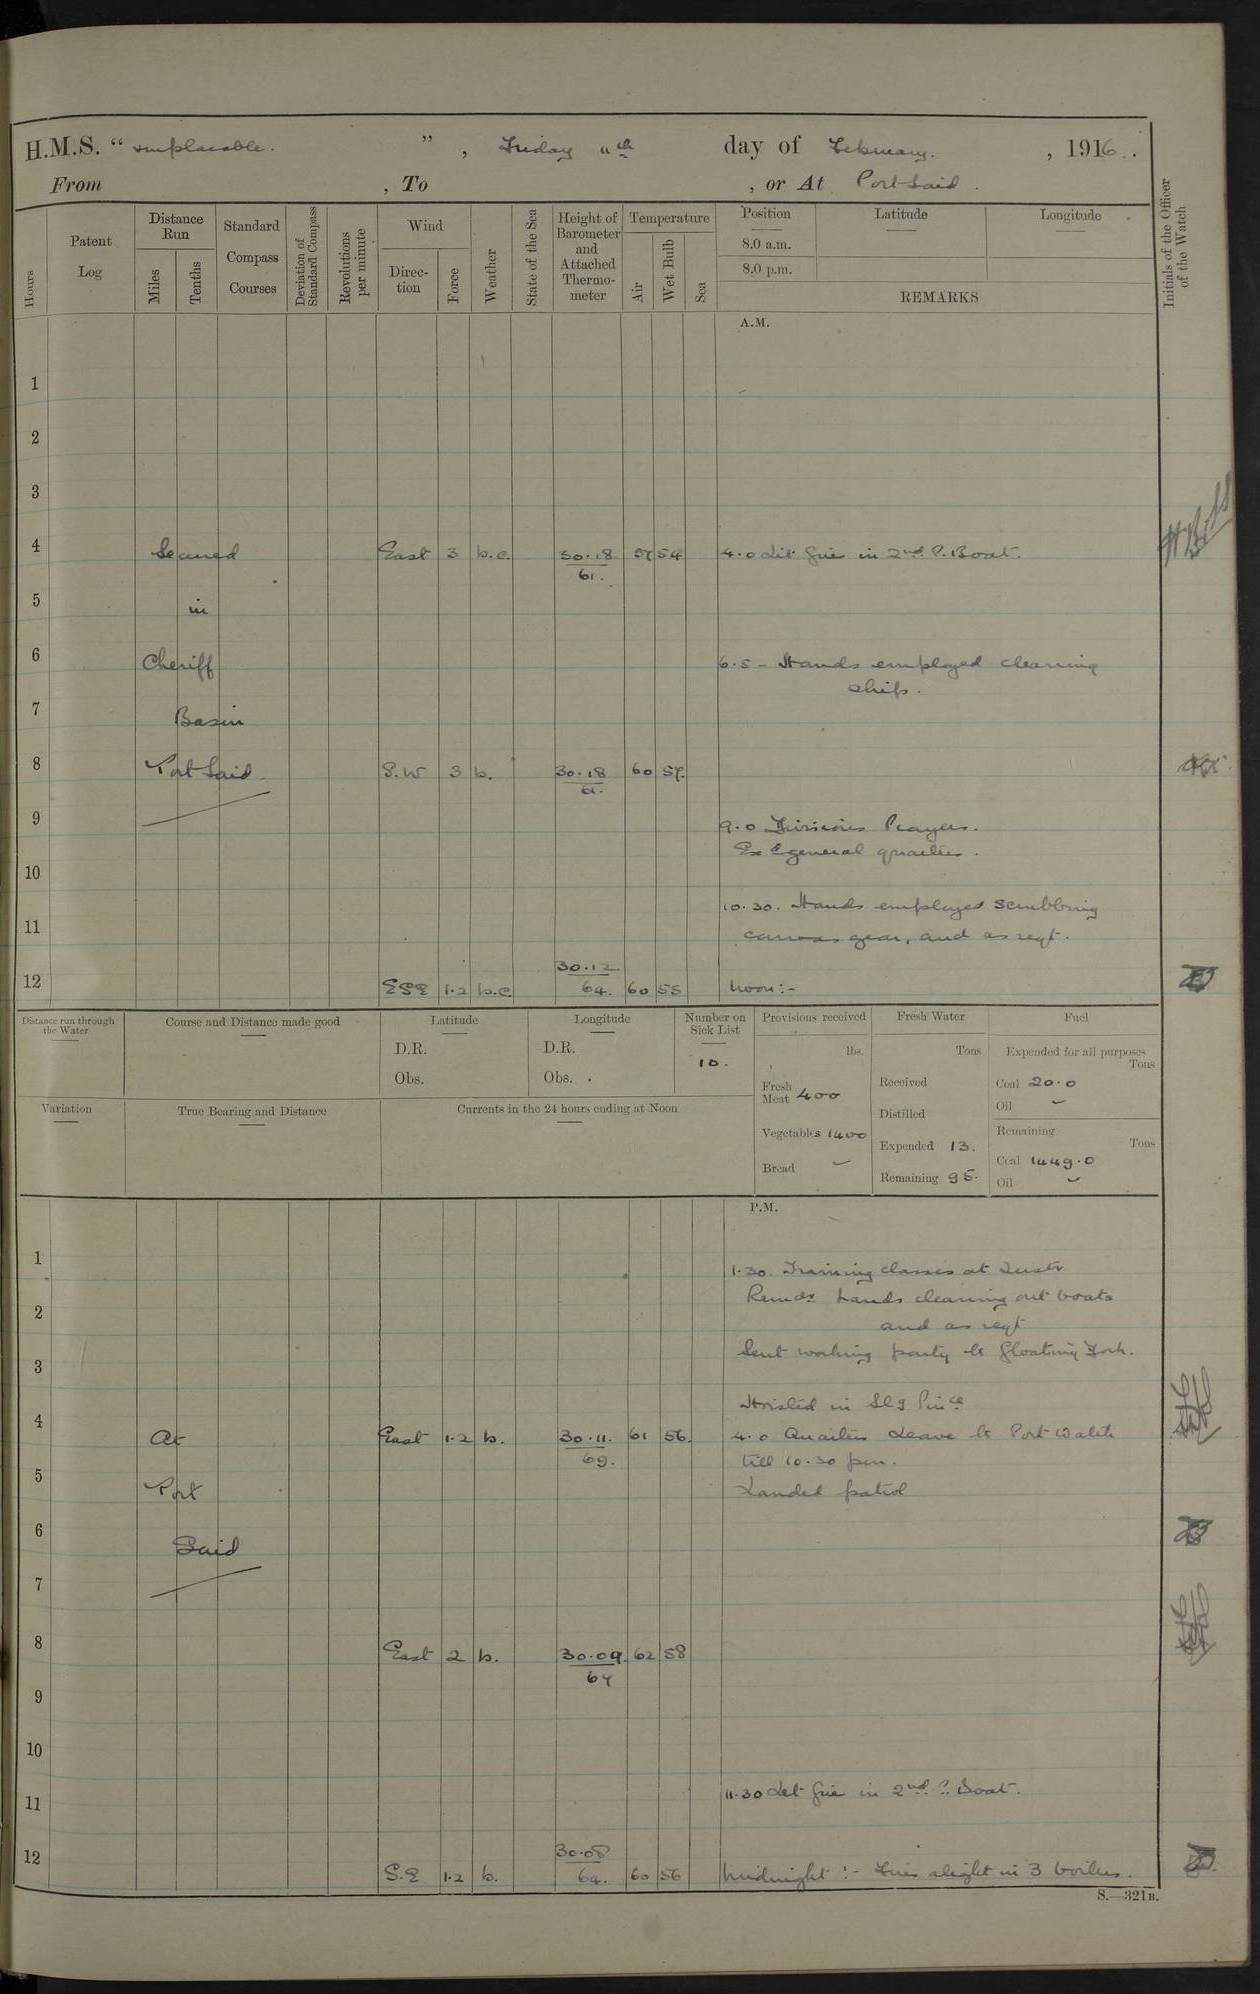 H.M.S. “ Implacable. ” , Friday 11th day of February. , 1916 .
From , To , or At Port Said .
Hours
Patent Log
Distance Run
Miles
Tenths
Standard Compass Courses
Deviation of Standard Compass
Revolutions per minute
Wind
Direc-tion
Force
Weather
State of the Sea
Height of Barometer and Attached Thermo-meter
Temperature
Air
Wet Bulb
Sea
Position Latitude Longitude
8.0 a.m.
8.0 p.m.
REMARKS
Initials of the Officer of the Watch
A.M.
1
2
3
4 Secured East 3 b.c. 30.18. 57 54 4.0 Lit fire in 2nd P. Boat.
61.
5 in
6 Cheriff 6.5 - Hands employed cleaning
ship.
7 Basin
8 Port Said S.W 3 b. 30.18 60 57.
61.
9 9.0 Divisions Prayers.
Ex general quarters.
10
10.30. Hands employed scrubbing
11 canvas gear, and as reqt.
30.12
12 ESE 1.2 b.c 64. 60 55 Noon:-
Distance run through the Water
Course and Distance made good
Latitude
D.R.
Obs.
Longitude
D.R.
Obs.
Number on Sick List
10.
Provisions received
lbs.
Fresh Meat 400
Vegetables 1400
Bread -
Fresh Water
Tons
Received
Distilled
Expended 13.
Remaining 95.
Fuel
Expended for all purposes
Tons
Coal 20.0
Oil -
Remaining
Tons
Coal 1449.0
Oil -
Variation
True Bearing and Distance
Currents in the 24 hours ending at Noon
P.M.
1 1.30. Training classes at Instr
Remdr hands cleaning out boats
2 and as reqt
3 Sent working party to floating Dock.
Hoisted in Slg Pince
4 At East 1.2 b. 30.11. 61 56. 4.0 Quarters Leave to Port Watch
69. till 10.30 pm.
5 Port Landed patrol
6 Said
7
8 East 2 b. 30.09. 62 58
64
9
10
11 11.30 Lit fire in 2nd P. Boat.
30.08
12 S.E 1.2 b. 64. 60 56 Midnight :- Fires alight in 3 boilers.
S.—321B.